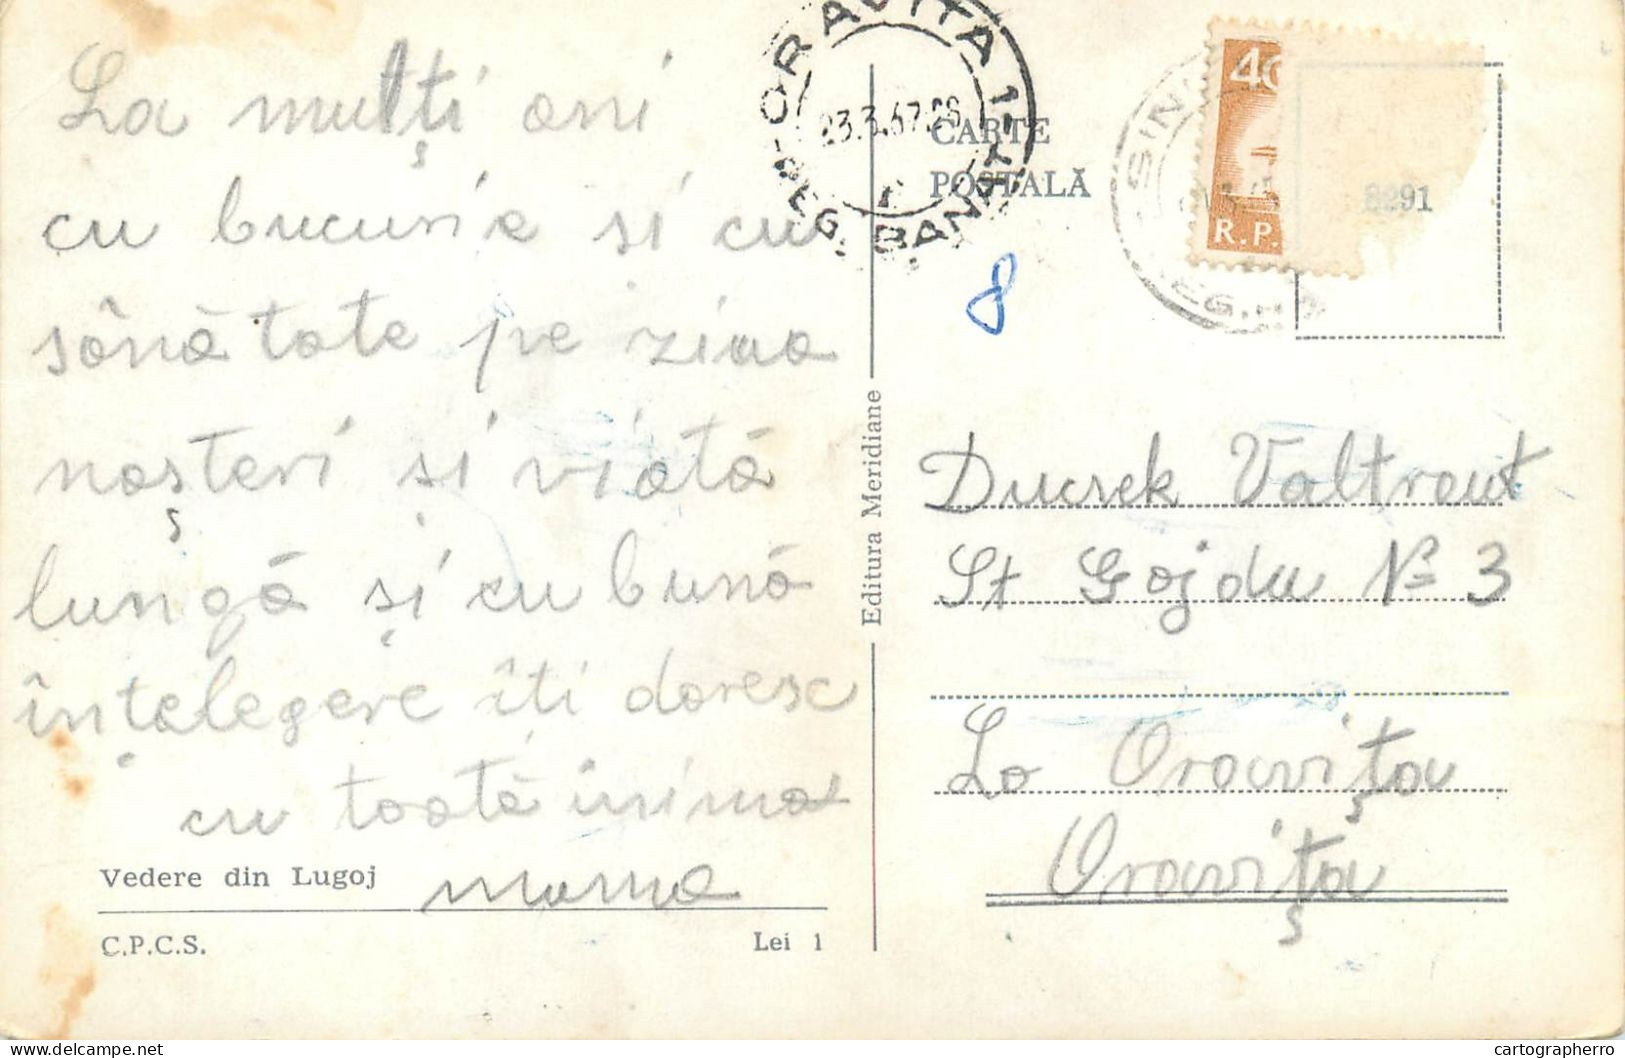 La mulți ani
cu bucurie si cu
sănătate pe ziua
nașteri si viată
lungă și cu bună
înțelegere îti doresc
cu toată inima
mama
Vedere din Lugoj
C.P.C.S.
Lei 1
Editura Meridiane
ORAVITA 1
23.3.67.
REG. BANAT
CARTE
POȘTALĂ
8
40
R.P.
8291
Ducsek Valtraut
St Gojdu № 3
La Oravița
Oravița
cartographerro